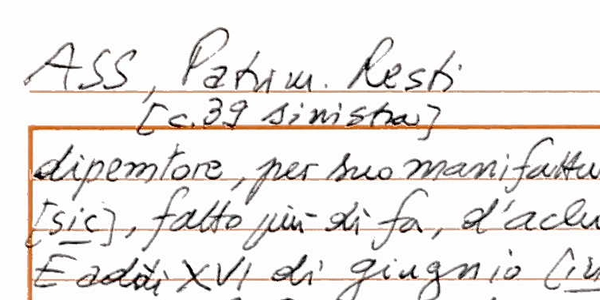 ASS, Patrim. Resti
[c.39 sinistra]
dipentore, per suo manifattu
[sic], fatto più dì fa, d'aclu
E addì XVI di giugnio